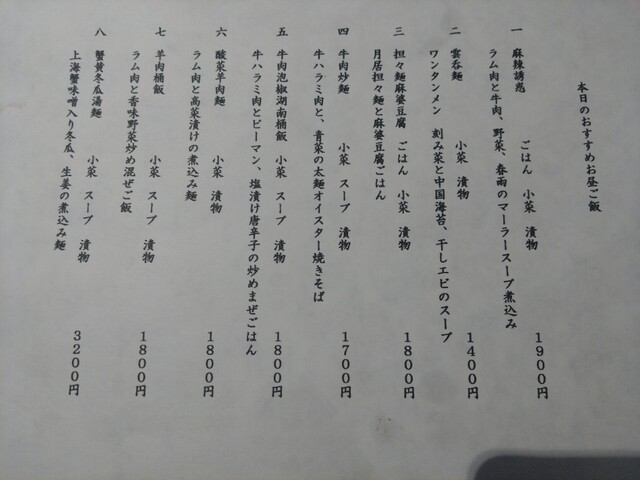 本日のおすすめお昼ご飯
一 麻辣誘惑 ごはん 小菜 漬物
ラム肉と牛肉、野菜、春雨のマーラースープ煮込み
1900円
二 雲呑麺 小菜 漬物
ワンタンメン 刻み菜と中国海苔、干しエビのスープ
1400円
三 担々麺麻婆豆腐 ごはん 小菜 漬物
月居担々麺と麻婆豆腐ごはん
1800円
四 牛肉炒麺 小菜 スープ 漬物
牛ハラミ肉と、青菜の太麺オイスター焼きそば
1700円
五 牛肉泡椒湖南桶飯 小菜 スープ 漬物
牛ハラミ肉とピーマン、塩漬け唐辛子の炒めまぜごはん
1800円
六 酸菜羊肉麺 小菜 漬物
ラム肉と高菜漬けの煮込み麺
1800円
七 羊肉桶飯 小菜 スープ 漬物
ラム肉と香味野菜炒め混ぜご飯
1800円
八 蟹黄冬瓜湯麺 小菜 スープ 漬物
上海蟹味噌入り冬瓜、生姜の煮込み麺
3200円